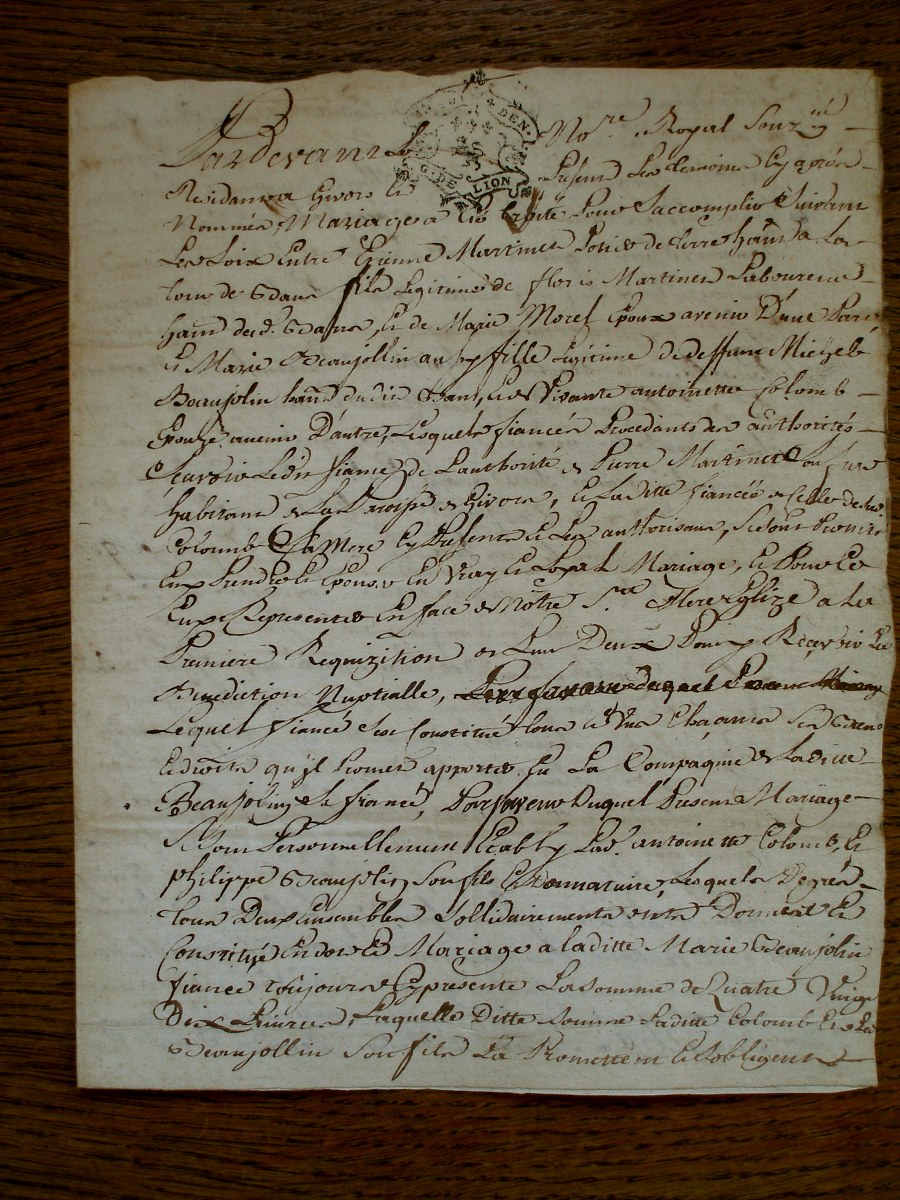 G. DE LION DEN.
Pardevant Le No.re Royal Souz.né
Residant a Givors Et Presens Les temoins Cy aprés
Nommés, Mariage a êté traité Pour S'accomplir Suivant
Les Loix Entre Etienne Martinet Potier de terre hañt a La
tour de Bans fils Legitime de floris Martinet Laboureur
hañt dud.t Bans, Et de Marie Morel Epoux avenir D'une Part
Et Marie Beaujollin aussy fille Legitime de deffunt Michel
Beaujolin hañt dudit Bans, Et de Vivante antoinette Colomb
Epouze avenir D'autre, Lesquels fiancés Procedants des authorités
Sçavoir Led.t fiancé de L'authorité de Pierre Martinet son frere
habitant de La Paroisse de Givors, Et Laditte fiancée de Celle de lad.
Colomb Sa Mere Cy Presents Et Les authorisans, Se Sont Promis
Eux Prendre Et Epouser En Vray Et Loyal Mariage, Et Pour Ce
Eux Representer En face de Nôtre S.te Mere Eglize a La
Premiere Requizition de L'un Deux Pour y Recevoir La
Benediction Nuptialle, Lequel fiancé S'est Constitué tous Et Uns Chacuns Ses Biens
Et droits qu'il Promet apporter En La Compagnie de Laditte
Beaujolin Sa fiancée, En faveur Duquel Present Mariage
Se Sont Personnellement Etably Lad. antoinette Colomb, Et
Philippe Beaujolin Son fils Et Donnataire, Lesquels De gré
tous Deux Ensembles Sollidairement Donnent Et
Constitue En dot Et Mariage a laditte Marie Beaujolin
fiancée toujours Cy presente La Somme de Quatre Vingt
Dix Livres, Laquelle Ditte Somme Laditte Colomb Et Led.
Beaujollin Son fils La Promettent Et S'obligent